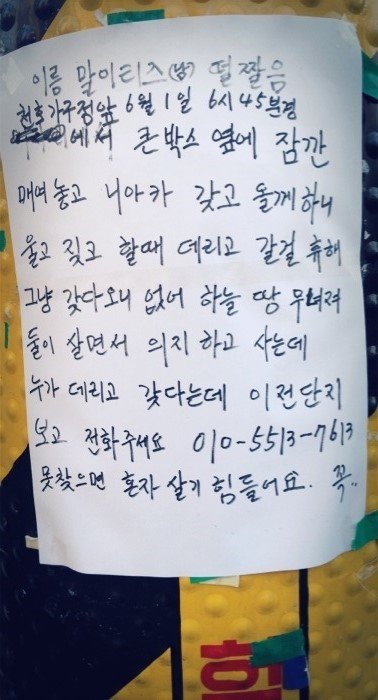 이름 말이티즈(남) 털짤음
천호가구정앞 6월 1일 6시 45분경
에서 큰박스 옆에 잠깐
매여놓고 니아카 갖고 올께하니
울고 짖고 할때 데리고 갈걸 휴해
그냥 갖다오니 없어 하늘 땅 무너져
둘이 살면서 의지하고 사는데
누가 데리고 갖다는데 이전단지
보고 전화주세요 010-5513-7613
못찾으면 혼자 살기 힘들어요. 꼭..